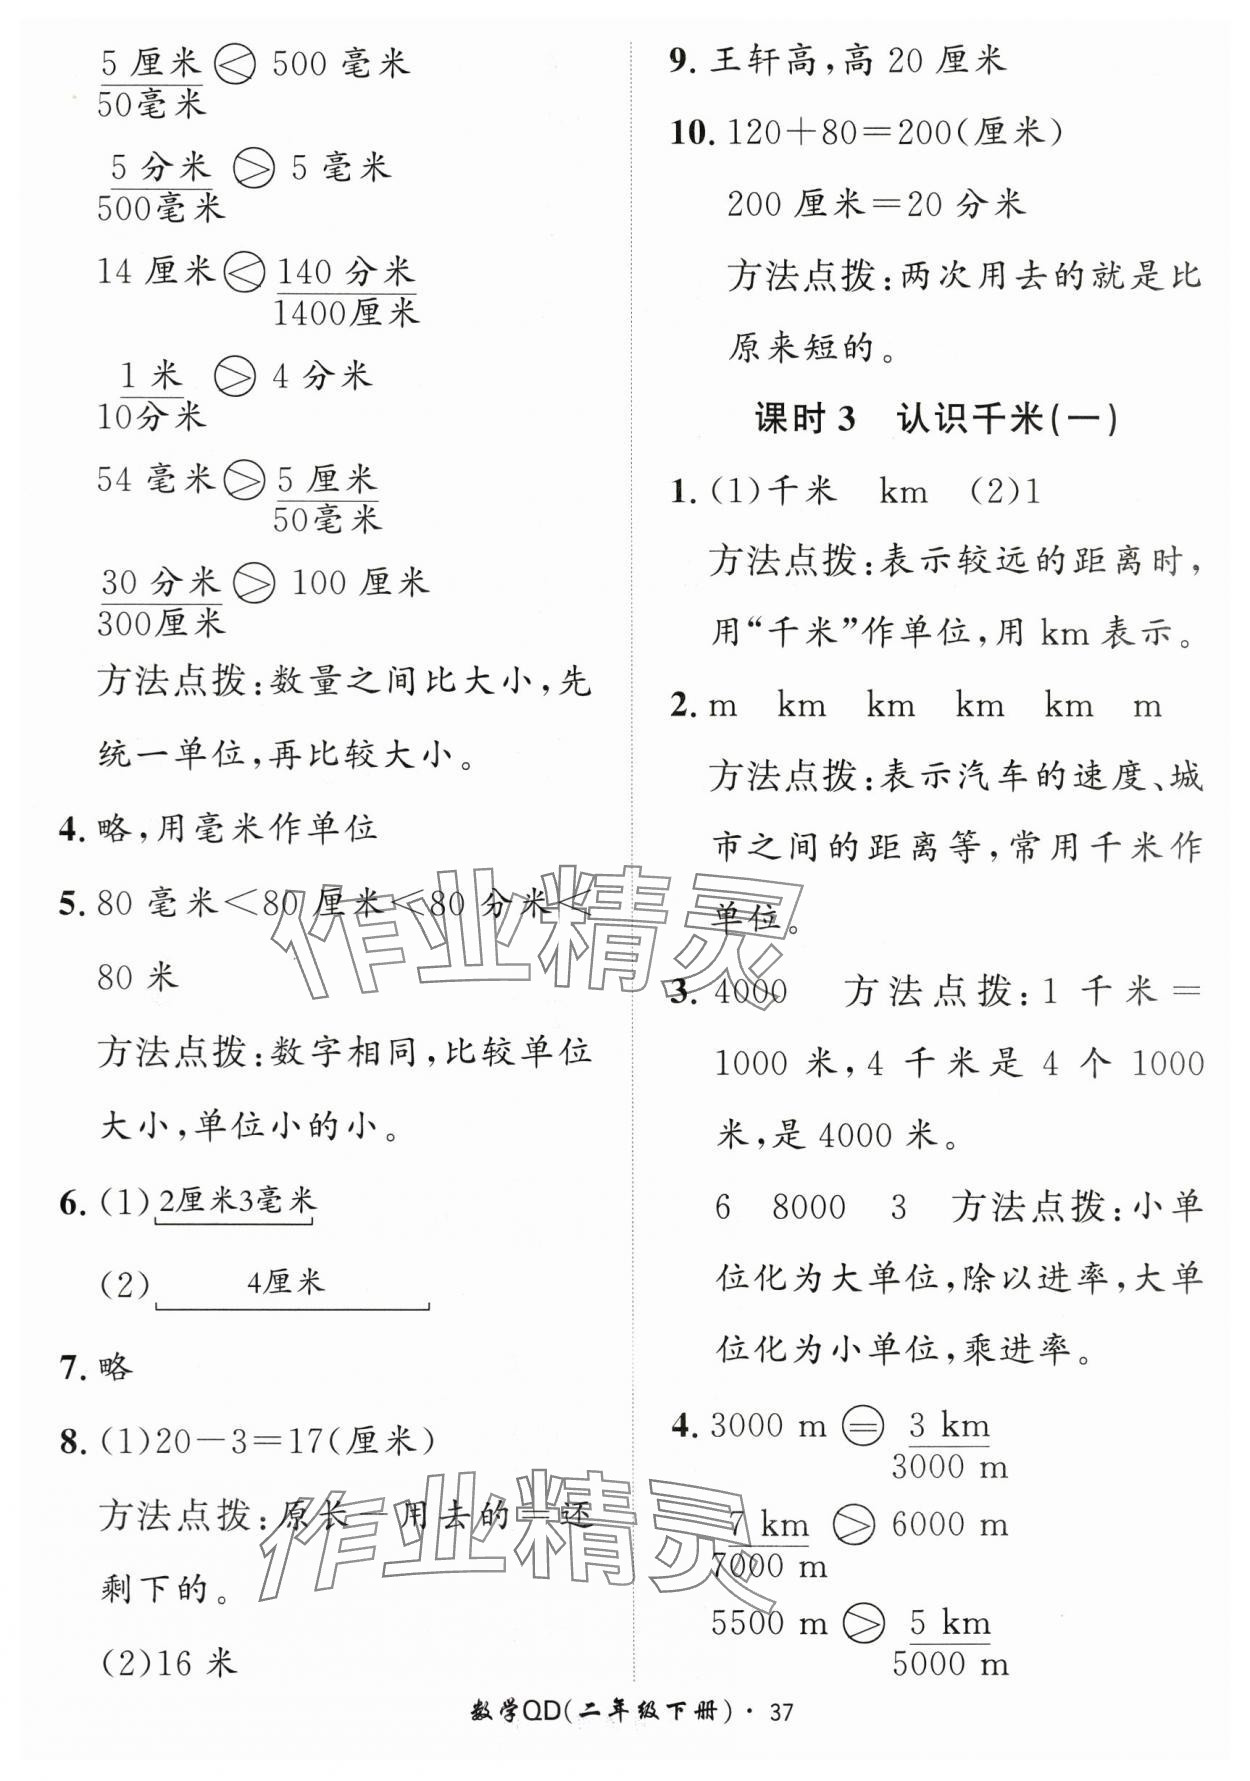 5 厘米 < 500 毫米
50毫米
5 分米 > 5 毫米
500毫米
14 厘米 < 140 分米
1400厘米
1 米 > 4 分米
10分米
54 毫米 > 5 厘米
50毫米
30 分米 > 100 厘米
300厘米
方法点拨:数量之间比大小,先
统一单位,再比较大小。
4. 略,用毫米作单位
5. 80 毫米<80 厘米<80 分米<
80 米
方法点拨:数字相同,比较单位
大小,单位小的小。
6. (1) 2厘米3毫米
(2) 4厘米
7. 略
8. (1)20-3=17(厘米)
方法点拨:原长-用去的=还
剩下的。
(2)16 米
9. 王轩高,高 20 厘米
10. 120+80=200(厘米)
200 厘米=20 分米
方法点拨:两次用去的就是比
原来短的。
课时 3 认识千米(一)
1. (1)千米 km (2)1
方法点拨:表示较远的距离时,
用“千米”作单位,用 km 表示。
2. m km km km km m
方法点拨:表示汽车的速度、城
市之间的距离等,常用千米作
单位。
3. 4000 方法点拨:1 千米=
1000 米,4 千米是 4 个 1000
米,是 4000 米。
6 8000 3 方法点拨:小单
位化为大单位,除以进率,大单
位化为小单位,乘进率。
4. 3000 m = 3 km
3000 m
7 km > 6000 m
7000 m
5500 m > 5 km
5000 m
数学QD(二年级下册)·37
作业精灵
作业精灵